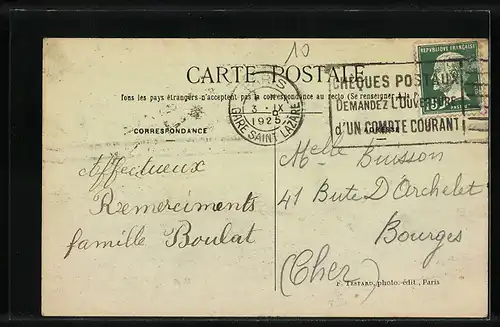 10
RÉPUBLIQUE FRANÇAISE
CARTE POSTALE
Tous les pays étrangers n'acceptent pas la correspondance au recto (Se renseigner à la
CORRESPONDANCE
PARIS
3 - IX
1925
GARE SAINT LAZARE
CHÈQUES POSTAUX
DEMANDEZ L'OUVERTURE
d'UN COMPTE COURANT
Affectueux
Remerciments
famille Boulat
Melle Buisson
41 Bute D'Archelet
Bourges
(Cher)
F. TESTARD, photo.-édit., Paris